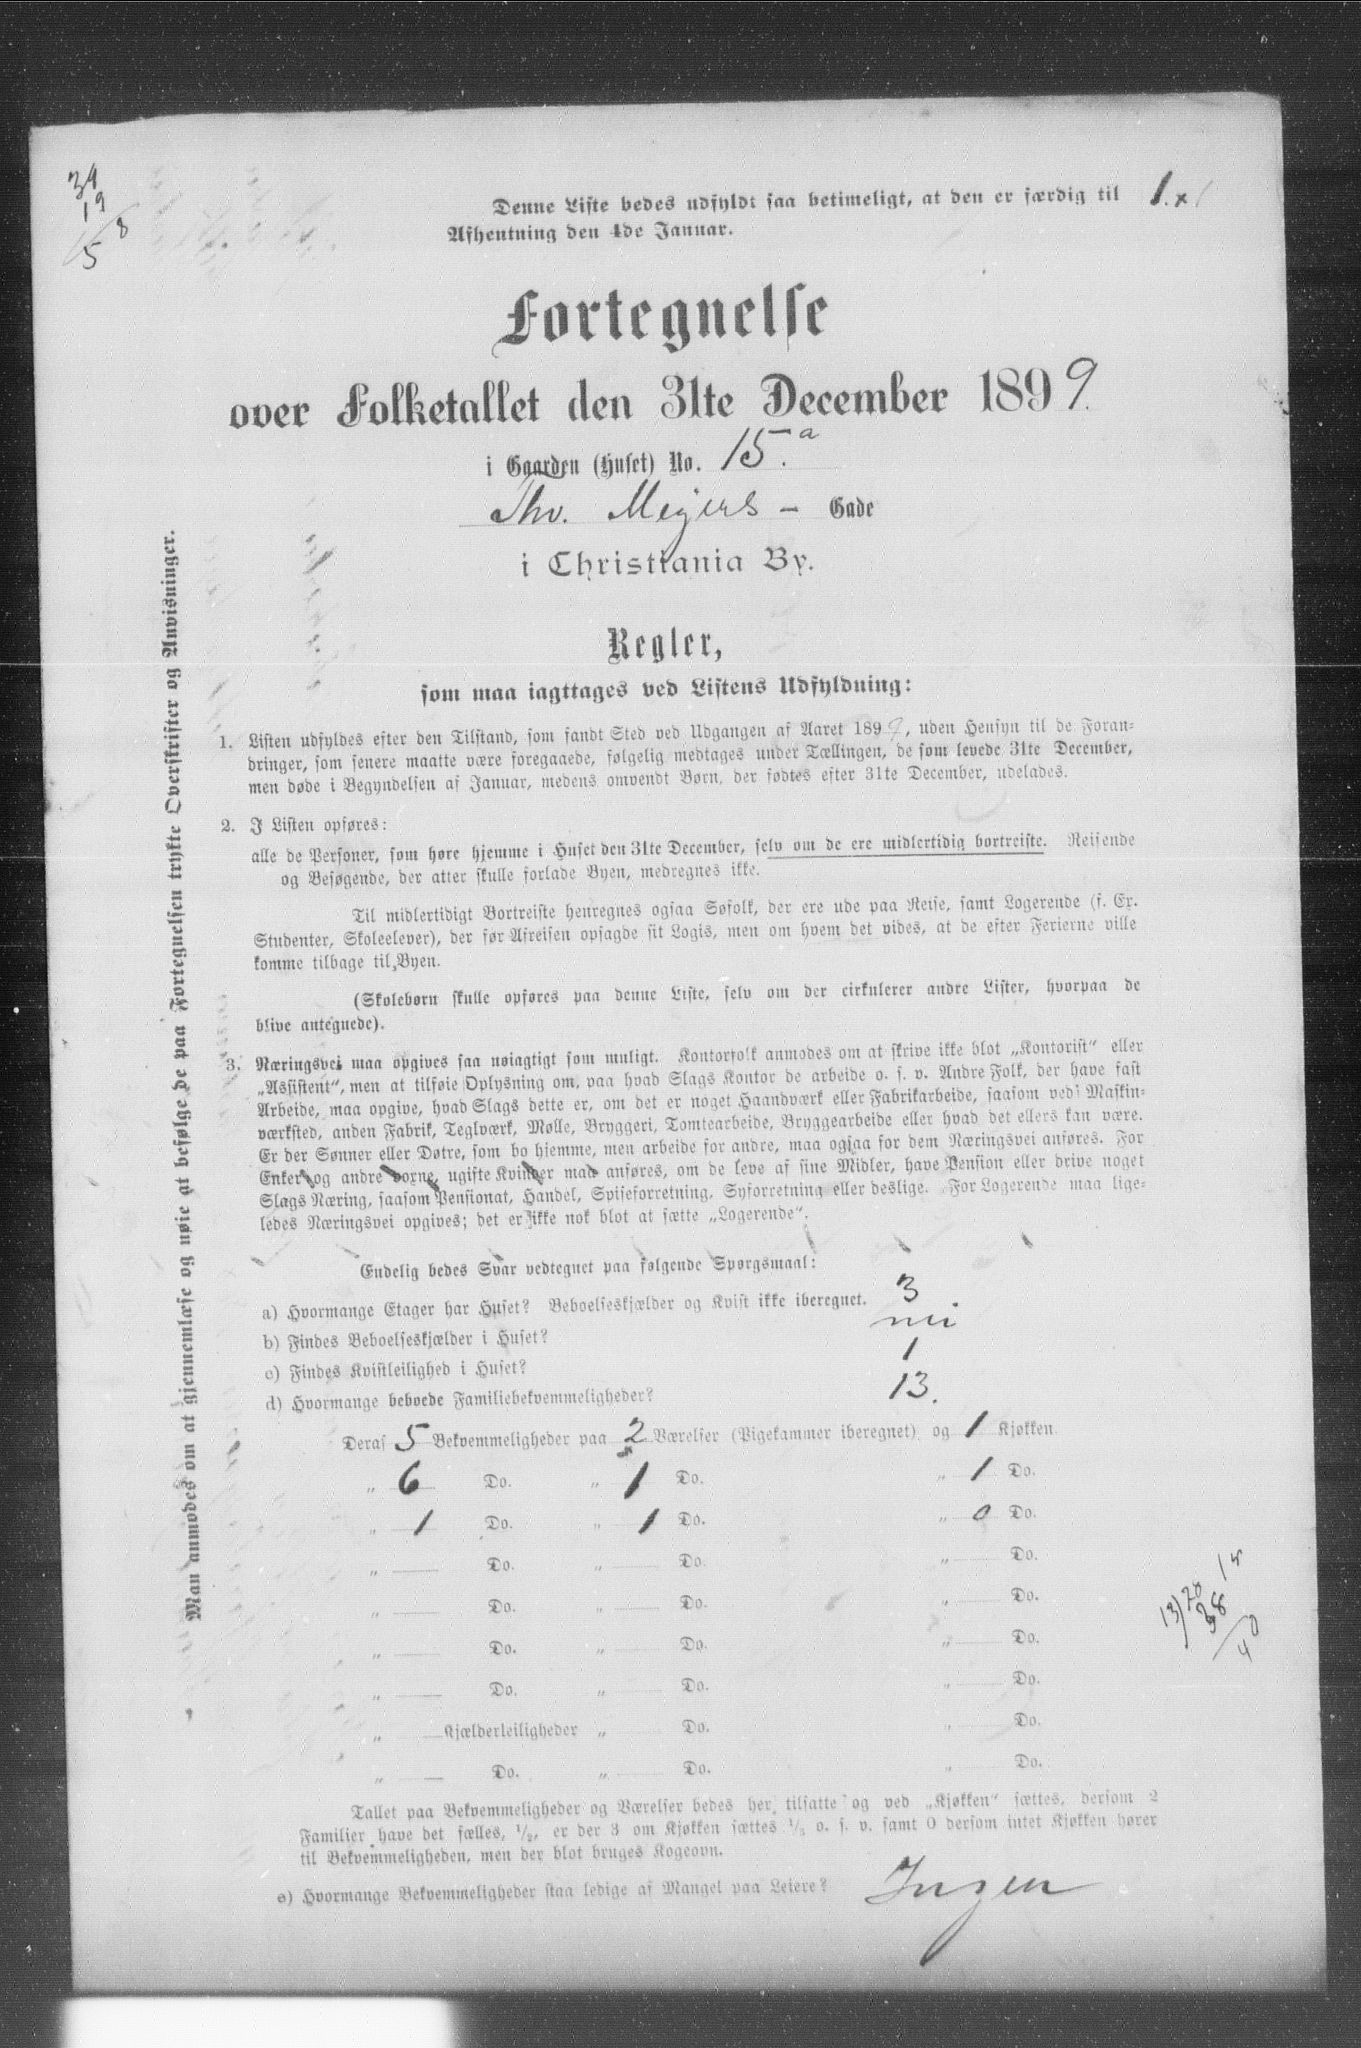 34
19
5 8
1. x
Denne Liste bedes udfyldt saa betimeligt, at den er færdig til
Afhentning den 4de Januar.
Fortegnelse
over Folketallet den 31te December 1899.
i Gaarden (Huset) No. 15.a
Thv. Meyers - Gade
i Christiania By.
Regler,
som maa iagttages ved Listens Udfyldning:
1. Listen udfyldes efter den Tilstand, som fandt Sted ved Udgangen af Aaret 1899, uden Hensyn til de Foran-
dringer, som senere maatte være foregaaede, følgelig medtages under Tællingen, de som levede 31te December,
men døde i Begyndelsen af Januar, medens omvendt Børn, der fødtes efter 31te December, udelades.
2. I Listen opføres:
alle de Personer, som høre hjemme i Huset den 31te December, selv om de ere midlertidig bortreiste. Reisende
og Besøgende, der atter skulle forlade Byen, medregnes ikke.
Til midlertidigt Bortreiste henregnes ogsaa Søfolk, der ere ude paa Reise, samt Logerende (f. Ex.
Studenter, Skoleelever), der før Afreisen opsagde sit Logis, men om hvem det vides, at de efter Ferierne ville
komme tilbage til Byen.
(Skolebørn skulle opføres paa denne Liste, selv om der cirkulerer andre Lister, hvorpaa de
blive antegnede).
3. Næringsvei maa opgives saa nøiagtigt som muligt. Kontorfolk anmodes om at skrive ikke blot „Kontorist“ eller
„Assistent“, men at tilføie Oplysning om, paa hvad Slags Kontor de arbeide o. s. v. Andre Folk, der have fast
Arbeide, maa opgive, hvad Slags dette er, om det er noget Haandværk eller Fabrikarbeide, saasom ved Maskin-
værksted, anden Fabrik, Teglværk, Mølle, Bryggeri, Tomtearbeide, Bryggearbeide eller hvad det ellers kan være.
Er der Sønner eller Døtre, som bo hjemme, men arbeide for andre, maa ogsaa for dem Næringsvei anføres. For
Enker og andre voxne, ugifte Kvinder maa anføres, om de leve af sine Midler, have Pension eller drive noget
Slags Næring, saasom Pensionat, Handel, Spiseforretning, Syforretning eller deslige. For Logerende maa lige-
ledes Næringsvei opgives; det er ikke nok blot at sætte „Logerende“.
Endelig bedes Svar vedtegnet paa følgende Spørgsmaal:
a) Hvormange Etager har Huset? Beboelseskjælder og Kvist ikke iberegnet. 3
b) Findes Beboelseskjælder i Huset? nei
c) Findes Kvistleilighed i Huset? 1
d) Hvormange beboede Familiebekvemmeligheder? 13.
Deraf 5 Bekvemmeligheder paa 2 Værelser (Pigekammer iberegnet) og 1 Kjøkken
„ 6 Do. „ 1 Do. „ 1 Do.
„ 1 Do. „ 1 Do. „ 0 Do.
„ Do. „ Do. „ Do.
„ Do. „ Do. „ Do.
„ Do. „ Do. „ Do.
„ Do. „ Do. „ Do.
„ Kjælderleiligheder „ Do. „ Do.
„ Do. „ Do. „ Do.
Tallet paa Bekvemmeligheder og Værelser bedes her tilsatte og ved „Kjøkken“ sættes, dersom 2
Familier have det fælles, 1/2, er der 3 om Kjøkken sættes 1/3 o. s. v. samt 0 dersom intet Kjøkken hører
til Bekvemmeligheden, men der blot bruges Kogeovn.
e) Hvormange Bekvemmeligheder staa ledige af Mangel paa Leiere? Ingen
Man anmodes om at gjennemlæse og nøie at befølge de paa Fortegnelsen trykte Overskrifter og Anvisninger.